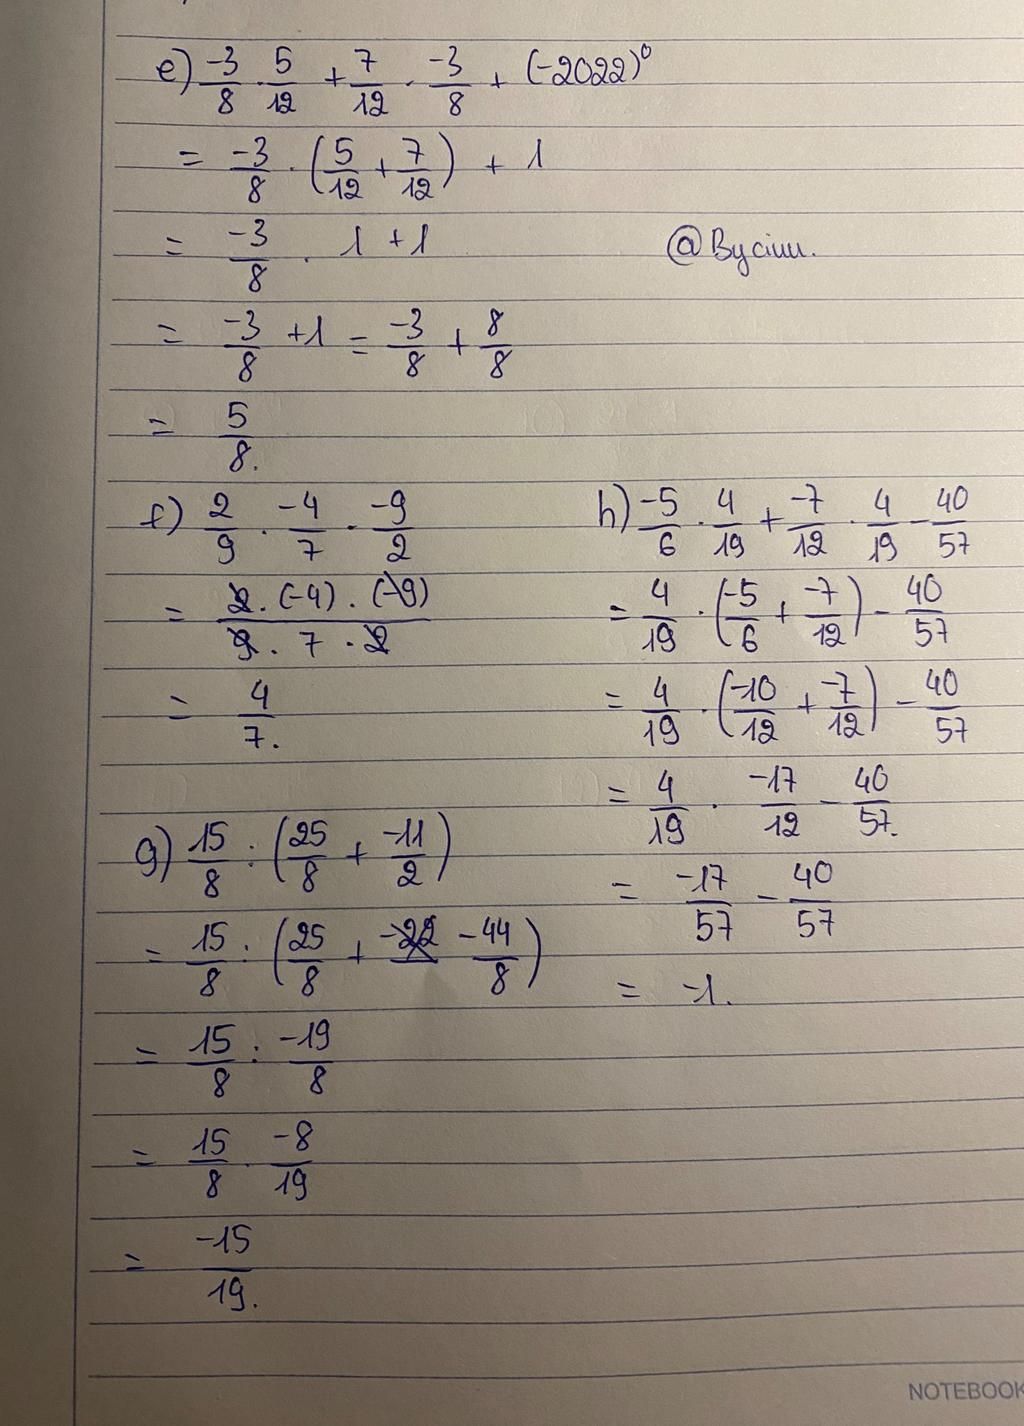 e) -3/8 . 5/12 + 7/12 . -3/8 + (-2022)⁰
= -3/8 . (5/12 + 7/12) + 1
= -3/8 . 1 + 1
@Byciuu.
= -3/8 + 1 = -3/8 + 8/8
= 5/8.
f) 2/9 . -4/7 . -9/2
= 2 . (-4) . (-9) / 9 . 7 . 2
= 4/7.
g) 15/8 : (25/8 + -11/2)
= 15/8 : (25/8 + -22 -44/8)
= 15/8 : -19/8
= 15/8 . -8/19
= -15/19.
h) -5/6 . 4/19 + -7/12 . 4/19 - 40/57
= 4/19 . (-5/6 + -7/12) - 40/57
= 4/19 . (-10/12 + -7/12) - 40/57
= 4/19 . -17/12 - 40/57.
= -17/57 - 40/57
= -1.
NOTEBOOK